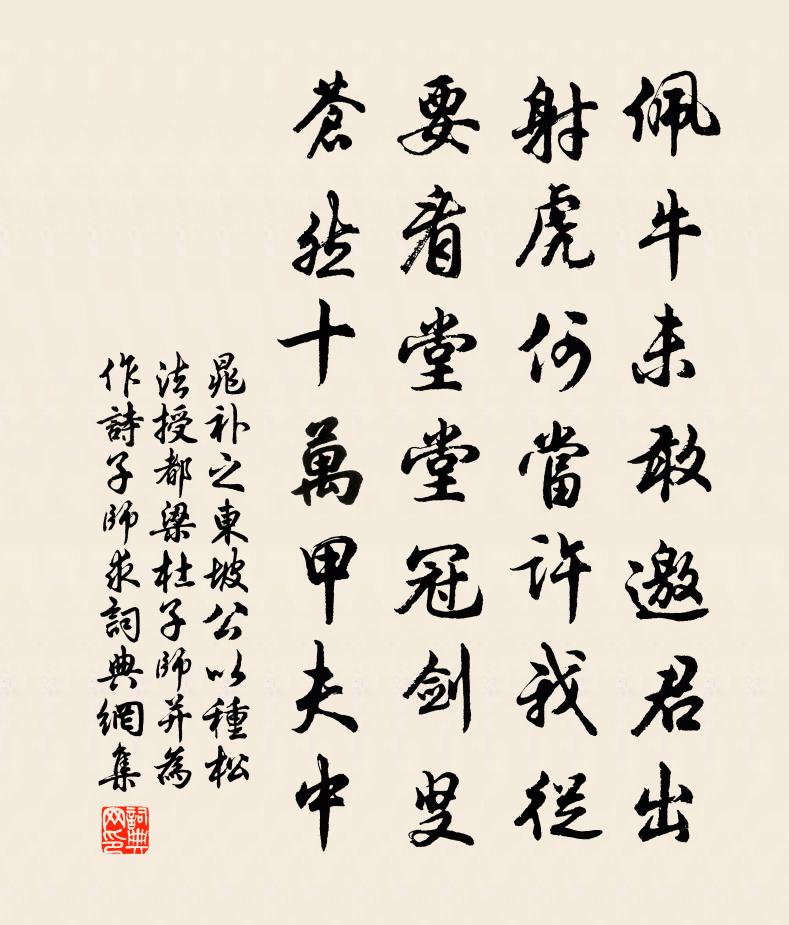 佩牛未敢邀君出
射虎何當許我從
要看堂堂冠剑叟
蒼然十萬甲夫中
晁补之東坡公以種松
法授都梁杜子師并為
作詩子師求詞典網集
詞典
网印